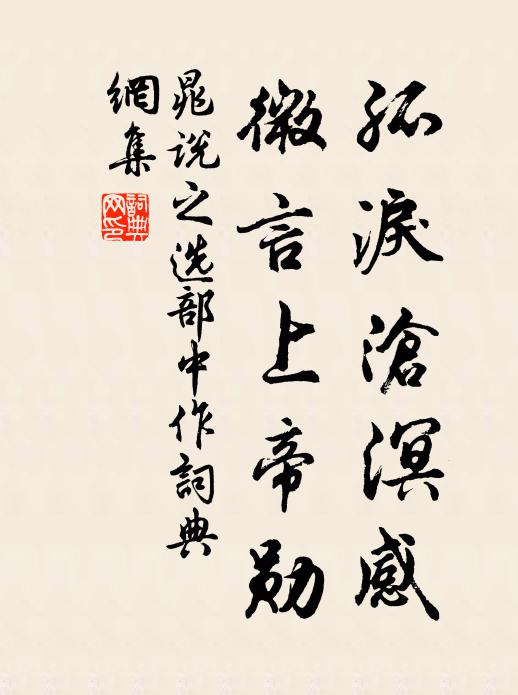 孤淚滄溟感
微言上帝勋
晁说之选部中作詞典
網集
詞典网印